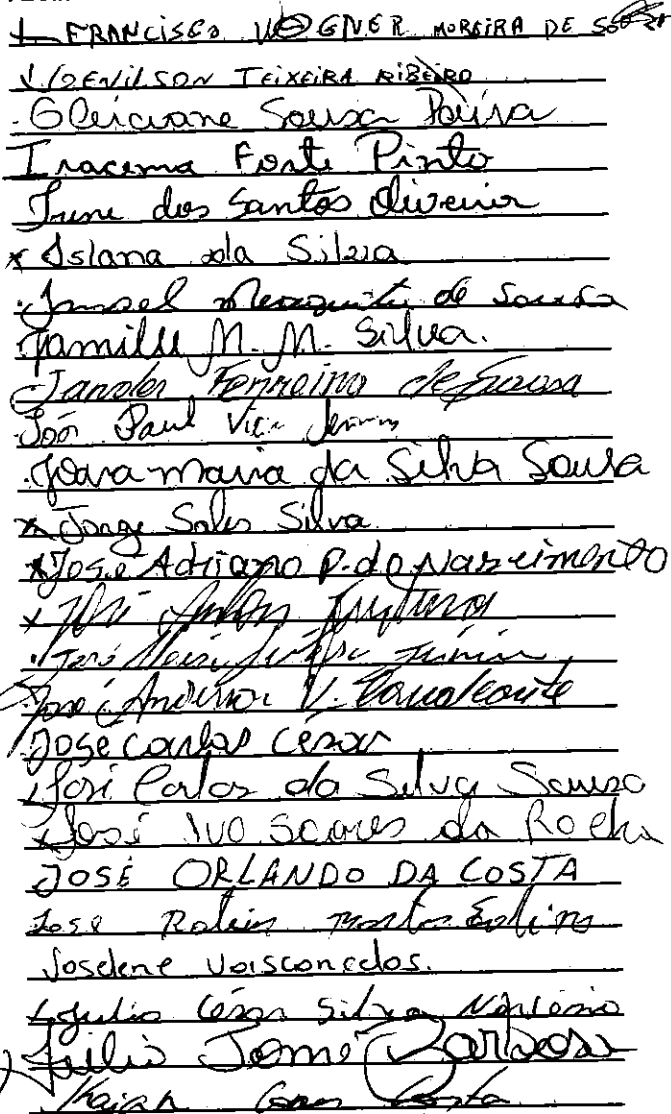 FRANCISCO VAGNER MOREIRA DE SOUZA
GENILSON TEIXEIRA RIBEIRO
Gleiciane Sousa Paiva
Iracema Forte Pinto
Irene dos Santos Oliveira
Islana da Silva
Ismael Mesquita de Sousa
Jamille M. M. Silva.
Jander Ferreira de Sousa
João Paul
Joara maria da Silva Sousa
Jorge Sales Silva
José Adriano P. do Nascimento
José
José Junior
José Anderson V. Cavalcante
José Carlos Cesar
José Carlos da Silva Sousa
José IVO Soares da Rocha
JOSÉ ORLANDO DA COSTA
José
Joselene Vasconcelos.
Julio Cesar Silva
Júlio Tomé Barbosa
Costa